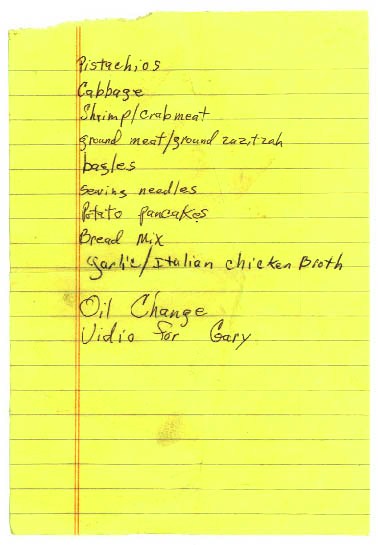 Pistachios
Cabbage
Shrimp/Crabmeat
ground meat/ground zazitzah
bagles
sewing needles
Potato pancakes
Bread Mix
garlic/Italian chicken Broth
Oil Change
Vidio for Gary